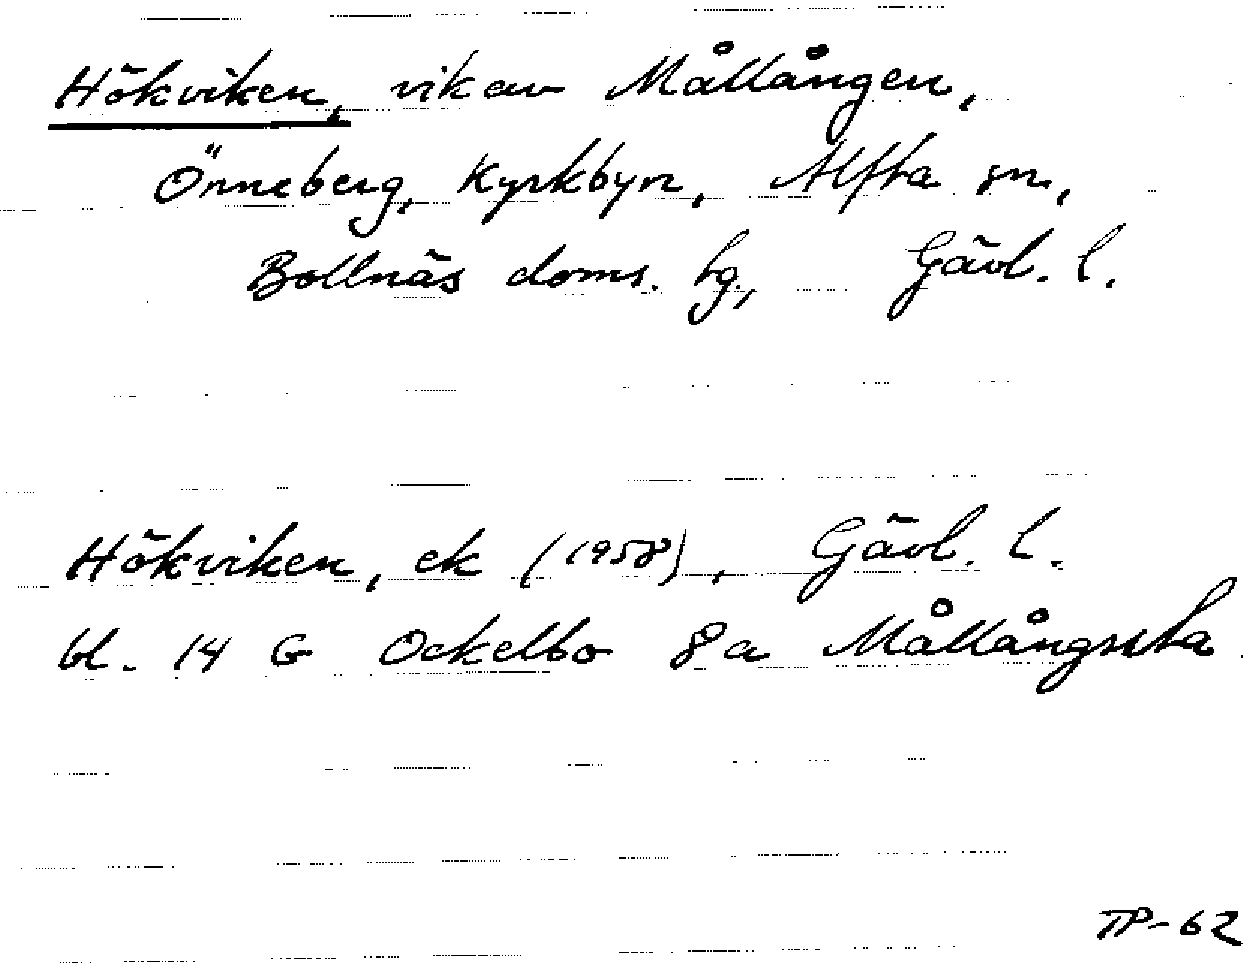 Hökviken, vik av Mållången,
Önneberg, Kyrkbyn, Alfta sn,
Bollnäs doms. tg., Gävl. l.
Hökviken, ek (1958), Gävl. l.
bl. 14 G Ockelbo 8a Mållångssta
TP-62